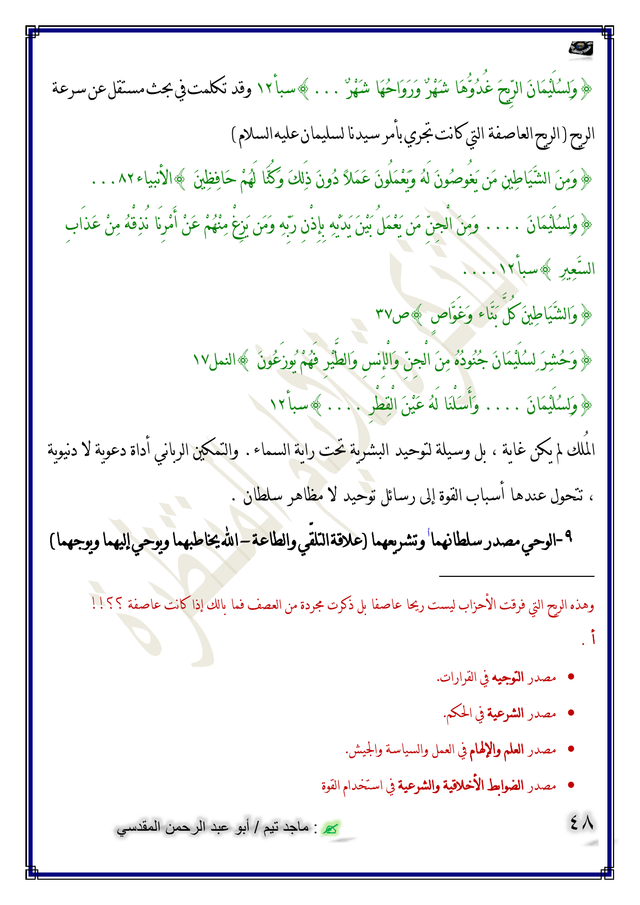 ﴿ وَلِسُلَيْمَانَ الرِّيحَ غُدُوُّهَا شَهْرٌ وَرَوَاحُهَا شَهْرٌ . . . ﴾سبأ١٢ وقد تكلمت في بحث مستقل عن سرعة
الريح ( الريح العاصفة التي كانت تجري بأمر سيدنا لسليمان عليه السلام )
﴿ وَمِنَ الشَّيَاطِينِ مَن يَغُوصُونَ لَهُ وَيَعْمَلُونَ عَمَلاً دُونَ ذَلِكَ وَكُنَّا لَهُمْ حَافِظِينَ ﴾الأنبياء٨٢ . . .
﴿ وَلِسُلَيْمَانَ . . . . وَمِنَ الْجِنِّ مَن يَعْمَلُ بَيْنَ يَدَيْهِ بِإِذْنِ رَبِّهِ وَمَن يَزِغْ مِنْهُمْ عَنْ أَمْرِنَا نُذِقْهُ مِنْ عَذَابِ
السَّعِيرِ ﴾سبأ١٢ . . . .
﴿ وَالشَّيَاطِينَ كُلَّ بَنَّاء وَغَوَّاصٍ ﴾ص٣٧
﴿ وَحُشِرَ لِسُلَيْمَانَ جُنُودُهُ مِنَ الْجِنِّ وَالْإِنسِ وَالطَّيْرِ فَهُمْ يُوزَعُونَ ﴾النمل١٧
﴿ وَلِسُلَيْمَانَ . . . . وَأَسَلْنَا لَهُ عَيْنَ الْقِطْرِ . . . . ﴾سبأ١٢
المُلك لم يكن غاية ، بل وسيلة لتوحيد البشرية تحت راية السماء . والتمكين الرباني أداة دعوية لا دنيوية
، تتحول عندها أسباب القوة إلى رسائل توحيد لا مظاهر سلطان .
٩-الوحي مصدر سلطانهما أ وتشريعهما (علاقة التلقّي والطاعة – الله يخاطبهما ويوحي إليهما ويوجهما )
وهذه الريح التي فرقت الأحزاب ليست ريحا عاصفا بل ذكرت مجردة من العصف فما بالك إذا كانت عاصفة ؟؟!!
أ .
• مصدر التوجيه في القرارات.
• مصدر الشرعية في الحكم.
• مصدر العلم والإلهام في العمل والسياسة والجيش.
• مصدر الضوابط الأخلاقية والشرعية في استخدام القوة
٤٨
: ماجد تيم / أبو عبد الرحمن المقدسي